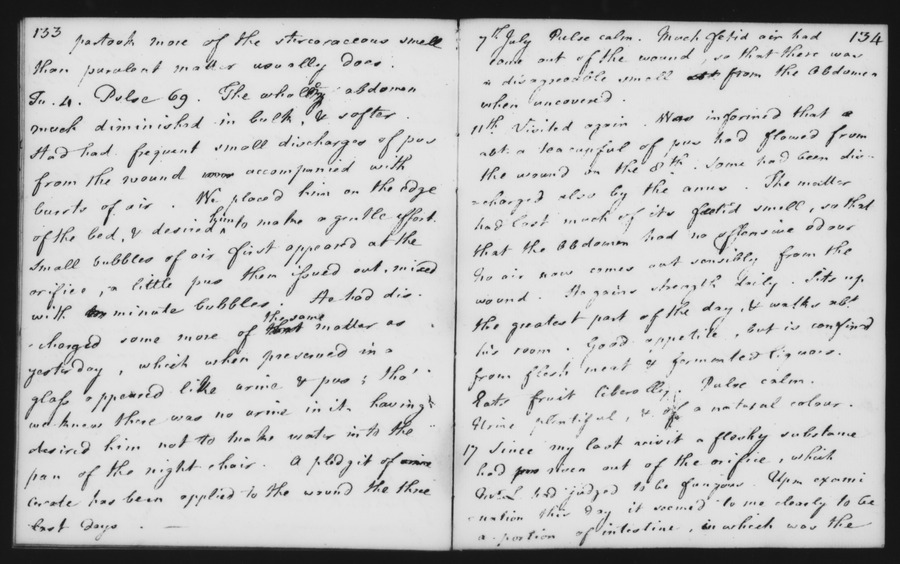 133
partook more of the stercoraceous smell
than purulent matter usually does.
Tu. 4. Pulse 69. The whole abdomen
much diminished in bulk, & softer.
Had had frequent small discharges of pus
from the wound accompanied with
bursts of air. We placed him on the edge
of the bed, & desired him to make a gentle effort.
Small bubbles of air first appeared at the
orifice, a little pus then issued out, mixed
with minute bubbles. He had dis-
-charged some more of the same matter as
yesterday, which when preserved in a
glass appeared like urine & pus; tho'
we knew there was no urine in it having
desired him not to make water into the
pan of the night chair. A pledgit of
cerate has been applied to the wound the three
last days.
134
7th July Pulse calm. Much fetid air had
come out of the wound, so that there was
a disagreeable smell from the Abdomen
when uncovered.
11th Visited again. Was informed that
abt. a teacupful of pus had flowed from
the wound on the 8th. Some had been dis-
-charged also by the anus. The matter
had lost much of its fœtid smell, so that
that the Abdomen had no offensive odour
No air now comes out sensibly from the
wound. He gains strength daily. Sits up
the greatest part of the day, & walks abt
his room. Good appetite, but is confined
from flesh meat & fermented liquors.
Eats fruit liberally. Pulse calm.
Urine plentiful, & of a natural colour.
17 Since my last visit a fleshy substance
had risen out of the orifice, which
had judged to be fungous. Upon exami
-nation this day it seemed to me clearly to be
a portion of intestine, in which was the